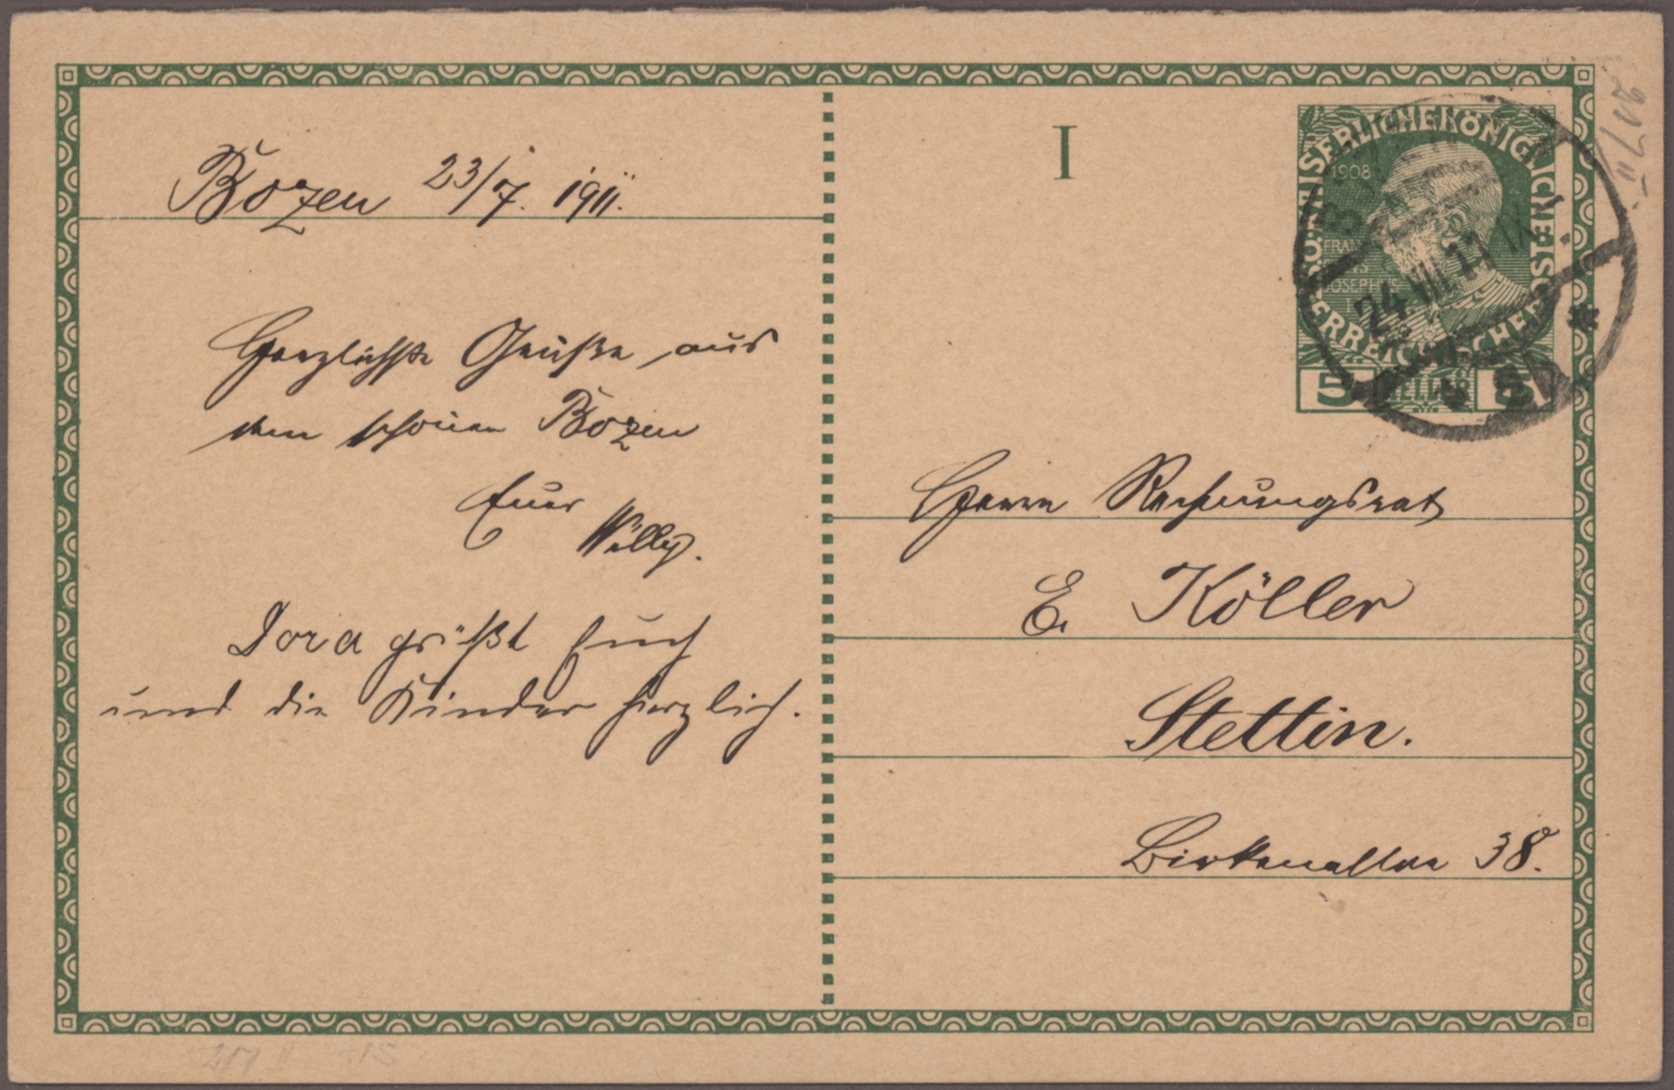 Bozen 23/7. 1911.
Herzlichste Grüße aus
dem schönen Bozen
Euer
Willy.
Dora grüßt Euch
und die Kinder herzlich.
I
KAISERLICHE KÖNIGLICHE ÖSTERREICHISCHE POST
1908
FRANCISCUS JOSEPHUS I
5 HELLER 5
24 VII 11 IX
Herrn Rechnungsrat
E. Köller
Stettin.
Birkenallee 38.